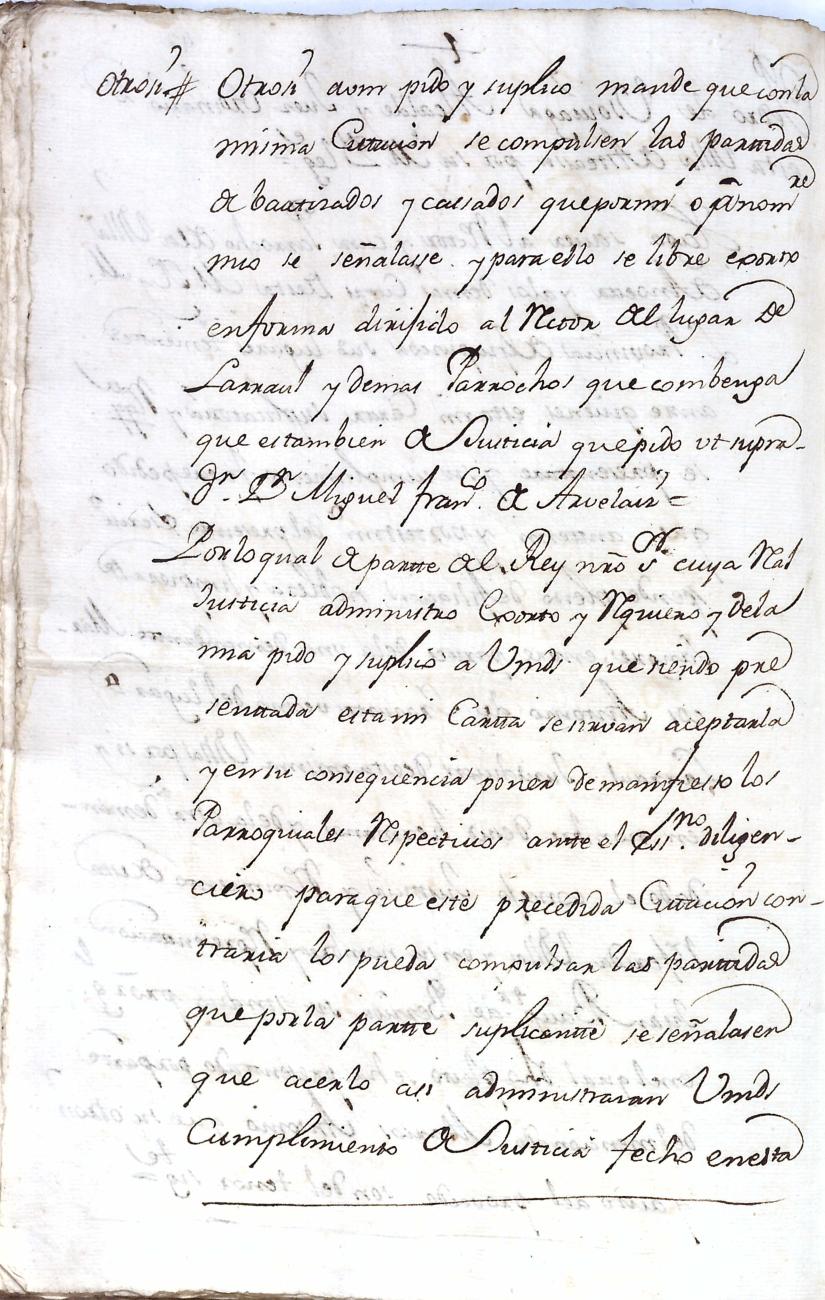 Otrosi # Otrosi a vm pido y suplico mande que con la
misma Cittacion se compulsen las parttidas
de bautizados y cassados que por mi o pr. nomre
mio se señalasse y para ello se libre exorto
en forma dirijido al Rector del lugar de
Larraul y demas Parrochos que combenga
que es tambien de Justicia que pido ut supra-
Dr. Dn Miguel Franco. de Arvelaiz=
Por lo qual de partte del Rey nro Sr. cuya Real
Justicia administro Exorto y Requiero y de la
mia pido y suplico a Vmds que siendo pre
senttada esta mi Cartta se sirvan aceptarla
y en su consequencia poner de manifiesto los
Parroquiales Respectivos antte el Essno. diligen-
ciero para que este precedida Cittacion con-
traria los pueda compulsar las parttidas
que por la partte suplicantte se señalasen
que acerlo asi administraran Vmds
Cumplimiento de Justicia fecho en esta